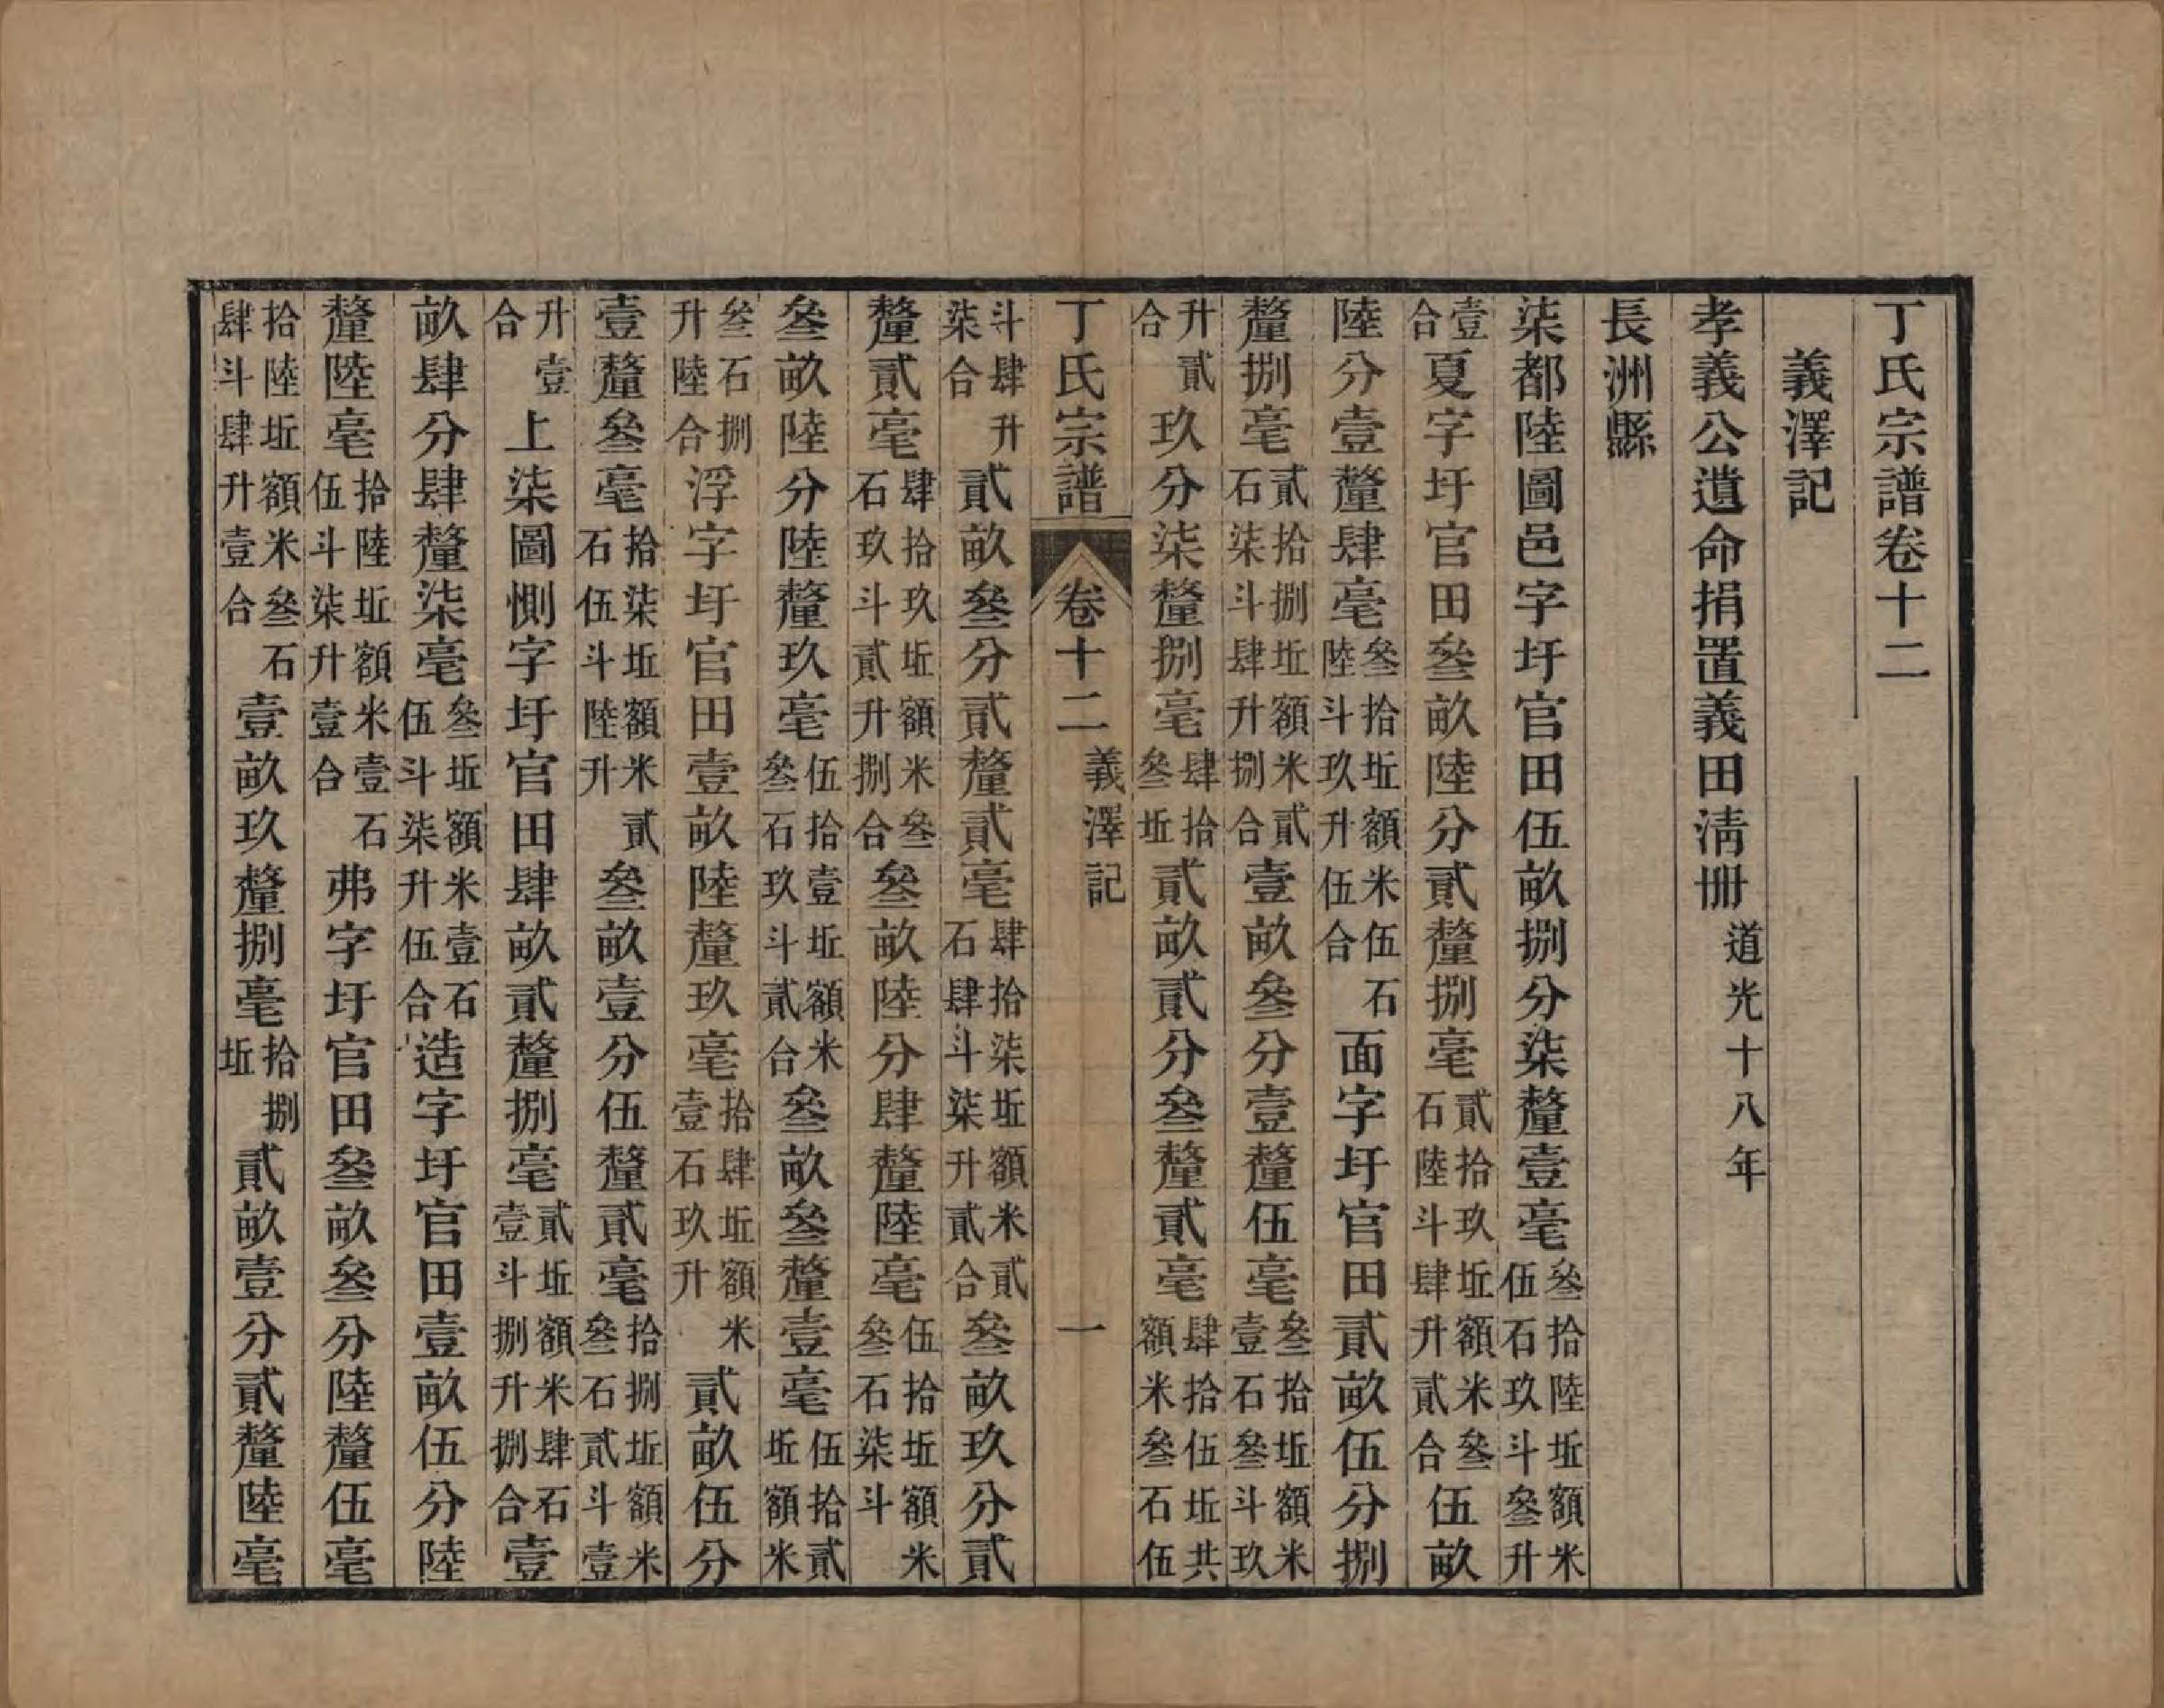 丁氏宗譜卷十二
義澤記
孝義公遺命捐置義田淸冊道光十八年
長洲縣
柒都陸圖邑字圩官田伍畝捌分柒釐壹毫叁拾陸坵額米伍石玖斗叁升
壹合夏字圩官田叁畝陸分貳釐捌毫貳拾玖坵額米叁石陸斗肆升貳合伍畝
陸分壹釐肆毫叁拾坵額米伍石陸斗玖升伍合面字圩官田貳畝伍分捌
釐捌毫貳拾捌坵額米貳石柒斗肆升捌合壹畝叁分壹釐伍毫叁拾坵額米壹石叁斗玖
升貳合玖分柒釐捌毫肆拾叁坵貳畝貳分叁釐貳毫肆拾伍坵共額米叁石伍
丁氏宗譜 卷十二 義澤記 一
斗肆升柒合貳畝叁分貳釐貳毫肆拾柒坵額米貳石肆斗柒升貳合叁畝玖分貳
釐貳毫肆拾玖坵額米叁石玖斗貳升捌合叁畝陸分肆釐陸毫伍拾坵額米叁石柒斗
叁畝陸分陸釐玖毫伍拾壹坵額米叁石玖斗貳合叁畝叁釐壹毫伍拾貳坵額米
叁石捌升陸合浮字圩官田壹畝陸釐玖毫拾肆坵額米壹石玖升貳畝伍分
壹釐叁毫拾柒坵額米貳石伍斗陸升叁畝壹分伍釐貳毫拾捌坵額米叁石貳斗壹
升壹合上柒圖惻字圩官田肆畝貳釐捌毫貳坵額米肆石壹斗捌升捌合壹
畝肆分肆釐柒毫叁坵額米壹石伍斗柒升伍合造字圩官田壹畝伍分陸
釐陸毫拾陸坵額米壹石伍斗柒升壹合弗字圩官田叁畝叁分陸釐伍毫
拾陸坵額米叁石肆斗肆升壹合壹畝玖釐捌毫拾捌坵貳畝壹分貳釐陸毫